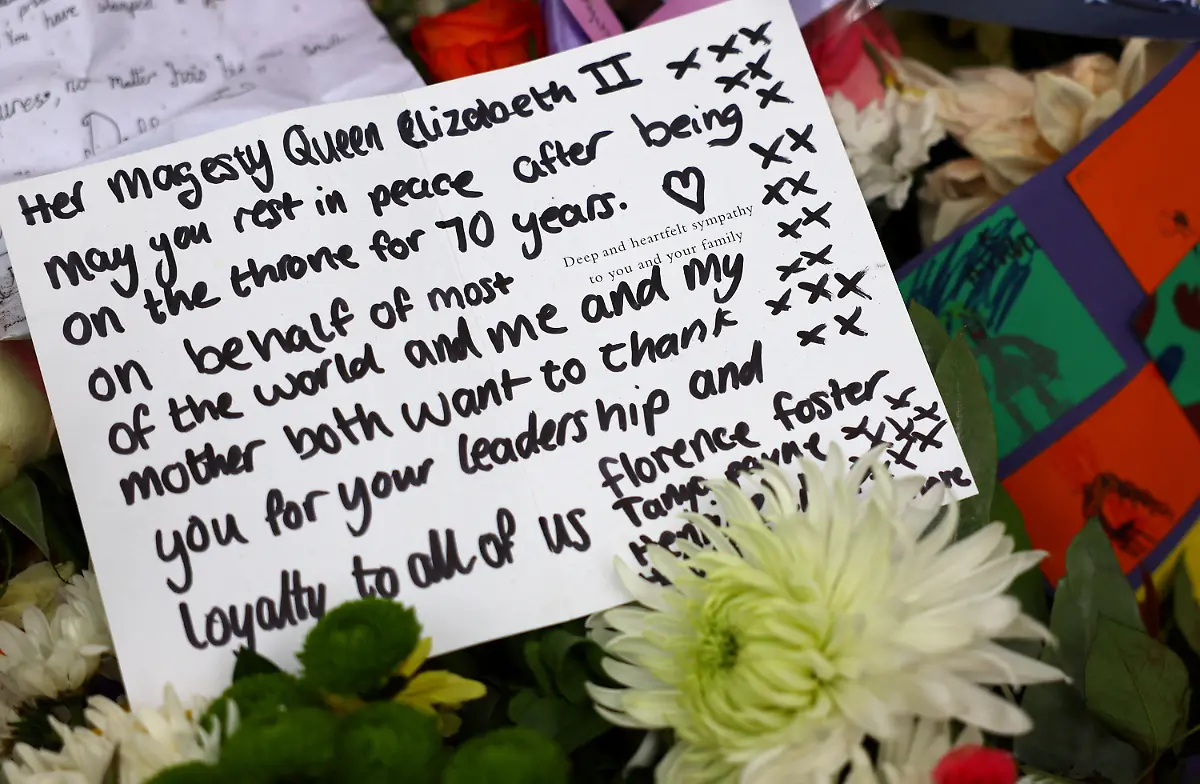 you have
no matter
Her Magesty Queen Elizabeth II xxx
xx
x
may you rest in peace after being
xx
on the throne for 70 years. ♡
xx
Deep and heartfelt sympathy
to you and your family
xx
on behalf of most
xx
of the world and me and my
xxx
mother both want to thank
xx
you for your leadership and
Loyalty to all of us
florence foster